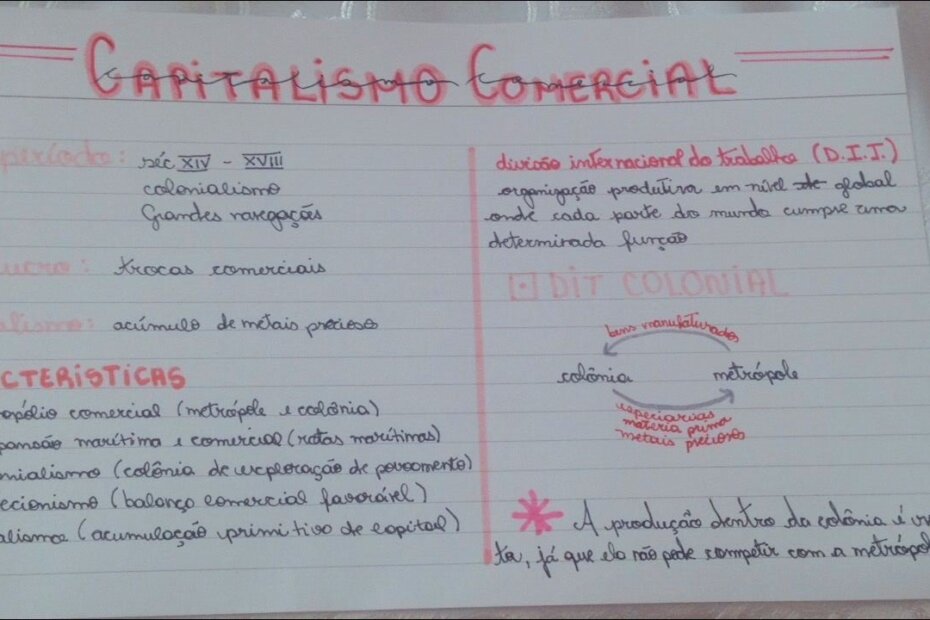 Capitalismo Comercial
período: séc XIV - XVIII
colonialismo
Grandes navegações
lucro: trocas comerciais
alismo: acúmulo de metais preciosos
CTERÍSTICAS
opólio comercial (metrópole e colônia)
pansão marítima e comercial (rotas marítimas)
nialismo (colônia de exploração de povoamento)
ecionismo (balança comercial favorável)
alismo (acumulação primitivo de capital)
divisão internacional do trabalho (D.I.T.)
organização produtiva em nível de global
onde cada parte do mundo cumpre uma
determinada função
DIT COLONIAL
bens manufaturados
colônia metrópole
especiarias
matéria prima
metais preciosos
* A produção dentro da colônia é
ta, já que ela não pode competir com a metrópol